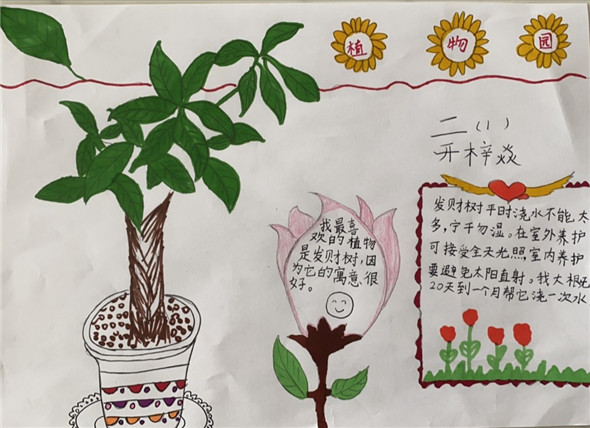 植物园
二(1)
开梓焱
我最喜
欢的植物
是发财树,因
为它的寓意很
好。
发财树平时浇水不能太
多,宁干勿湿。在室外养护
可接受全天光照,室内养护
要避免太阳直射。我大概
20天到一个月帮它浇一次水